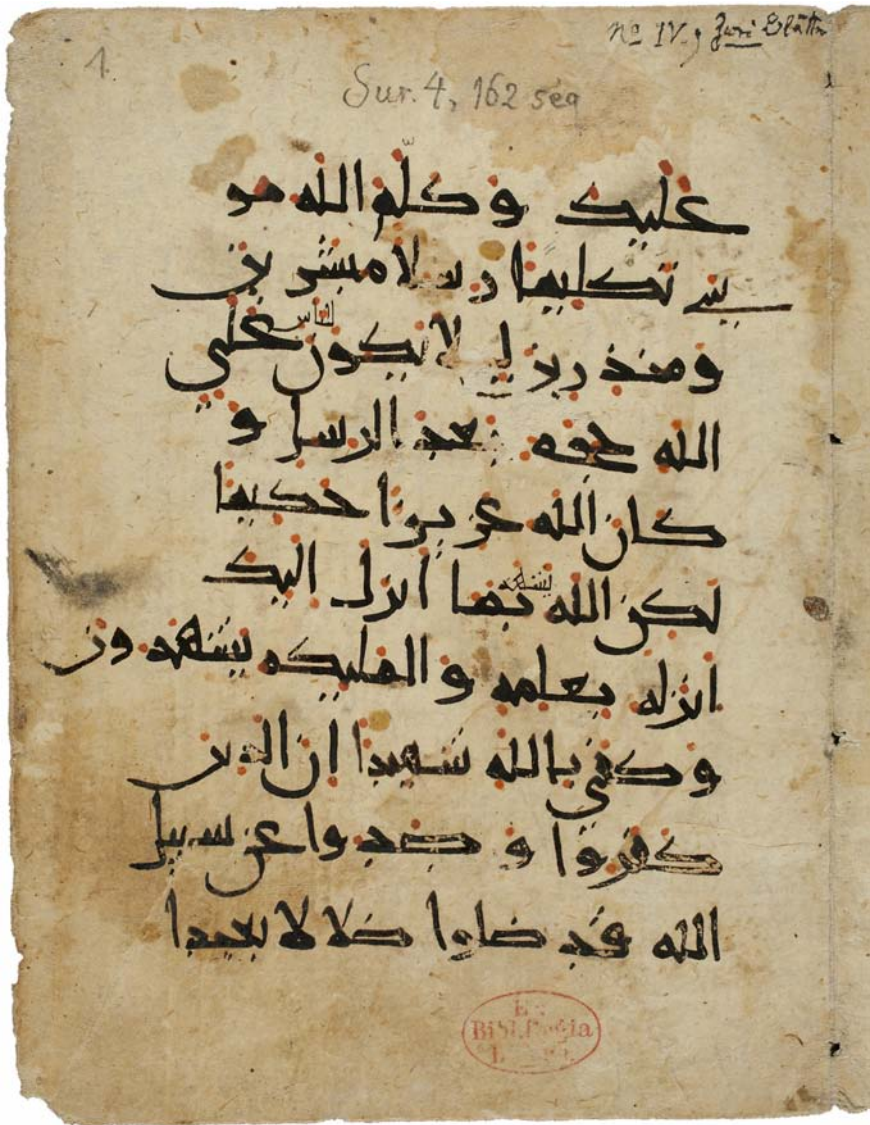 1.
No IV., Zwei Blätter
Sur. 4, 162 seq
عليك وكلم الله مو
سى تكليما رسلا مبشرين
ومنذرين ليلا يكون للناس على
الله حجة بعد الرسل و
كان الله عزيزا حكيما
لكن الله يشهد بما أنزل اليك
انزله بعلمه والمليكه يشهدون
وكفى بالله شهيدا ان الذين
كفروا وصدوا عن سبيل
الله قد ضلوا ضلالا بعيدا
Ex